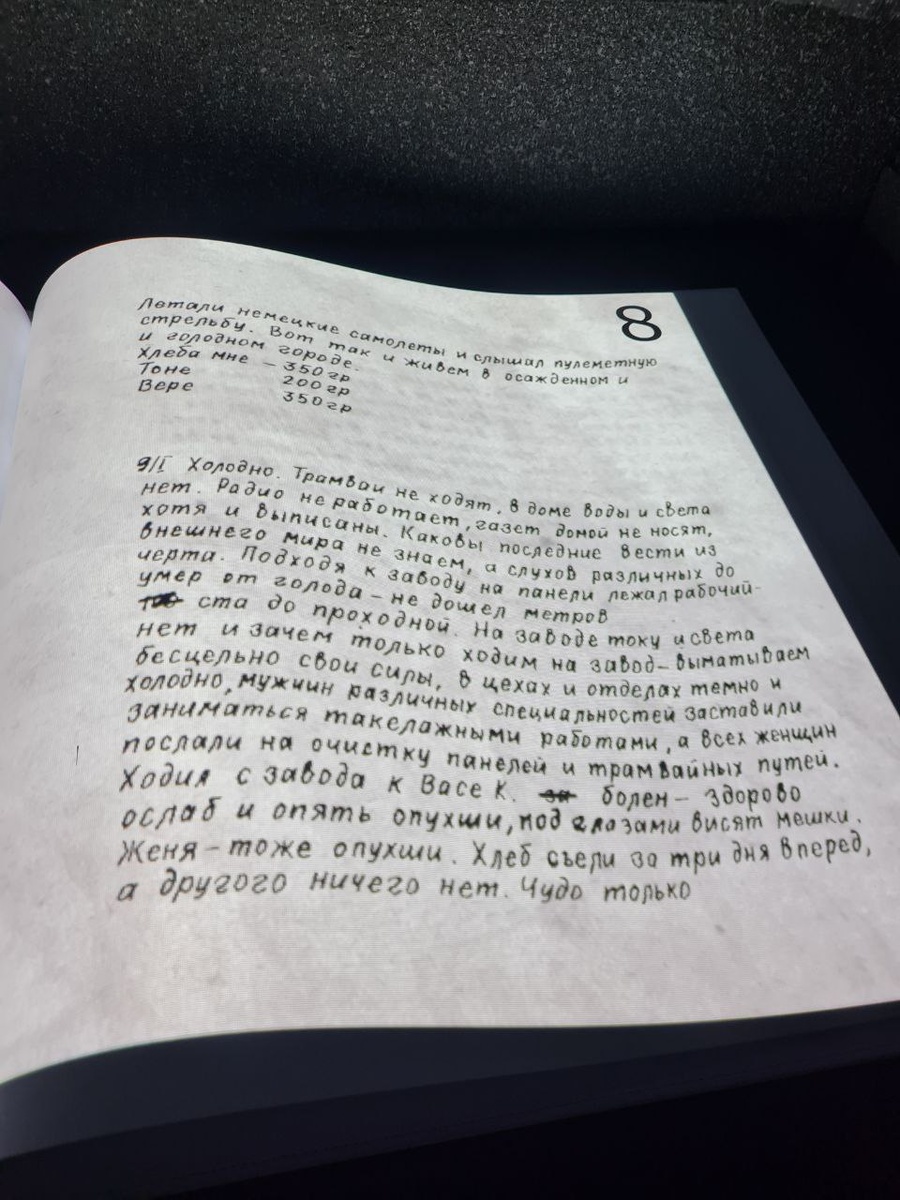 8
Летали немецкие самолеты и слышал пулеметную
стрельбу. Вот так и живем в осажденном и
и голодном городе.
Хлеба мне – 350гр
Тоне 200гр
Вере 350гр
9/I Холодно. Трамваи не ходят, в доме воды и света
нет. Радио не работает, газет домой не носят,
хотя и выписаны. Каковы последние вести из
внешнего мира не знаем, а слухов различных до
черта. Подходя к заводу на панели лежал рабочий-
умер от голода – не дошел метров
ста до проходной. На заводе току и света
нет и зачем только ходим на завод – выматываем
бесцельно свои силы, в цехах и отделах темно и
холодно, мужчин различных специальностей заставили
заниматься такелажными работами, а всех женщин
послали на очистку панелей и трамвайных путей.
Ходил с завода к Васе К. болен – здорово
ослаб и опять опухши, под глазами висят мешки.
Женя – тоже опухши. Хлеб съели за три дня вперед,
а другого ничего нет. Чудо только